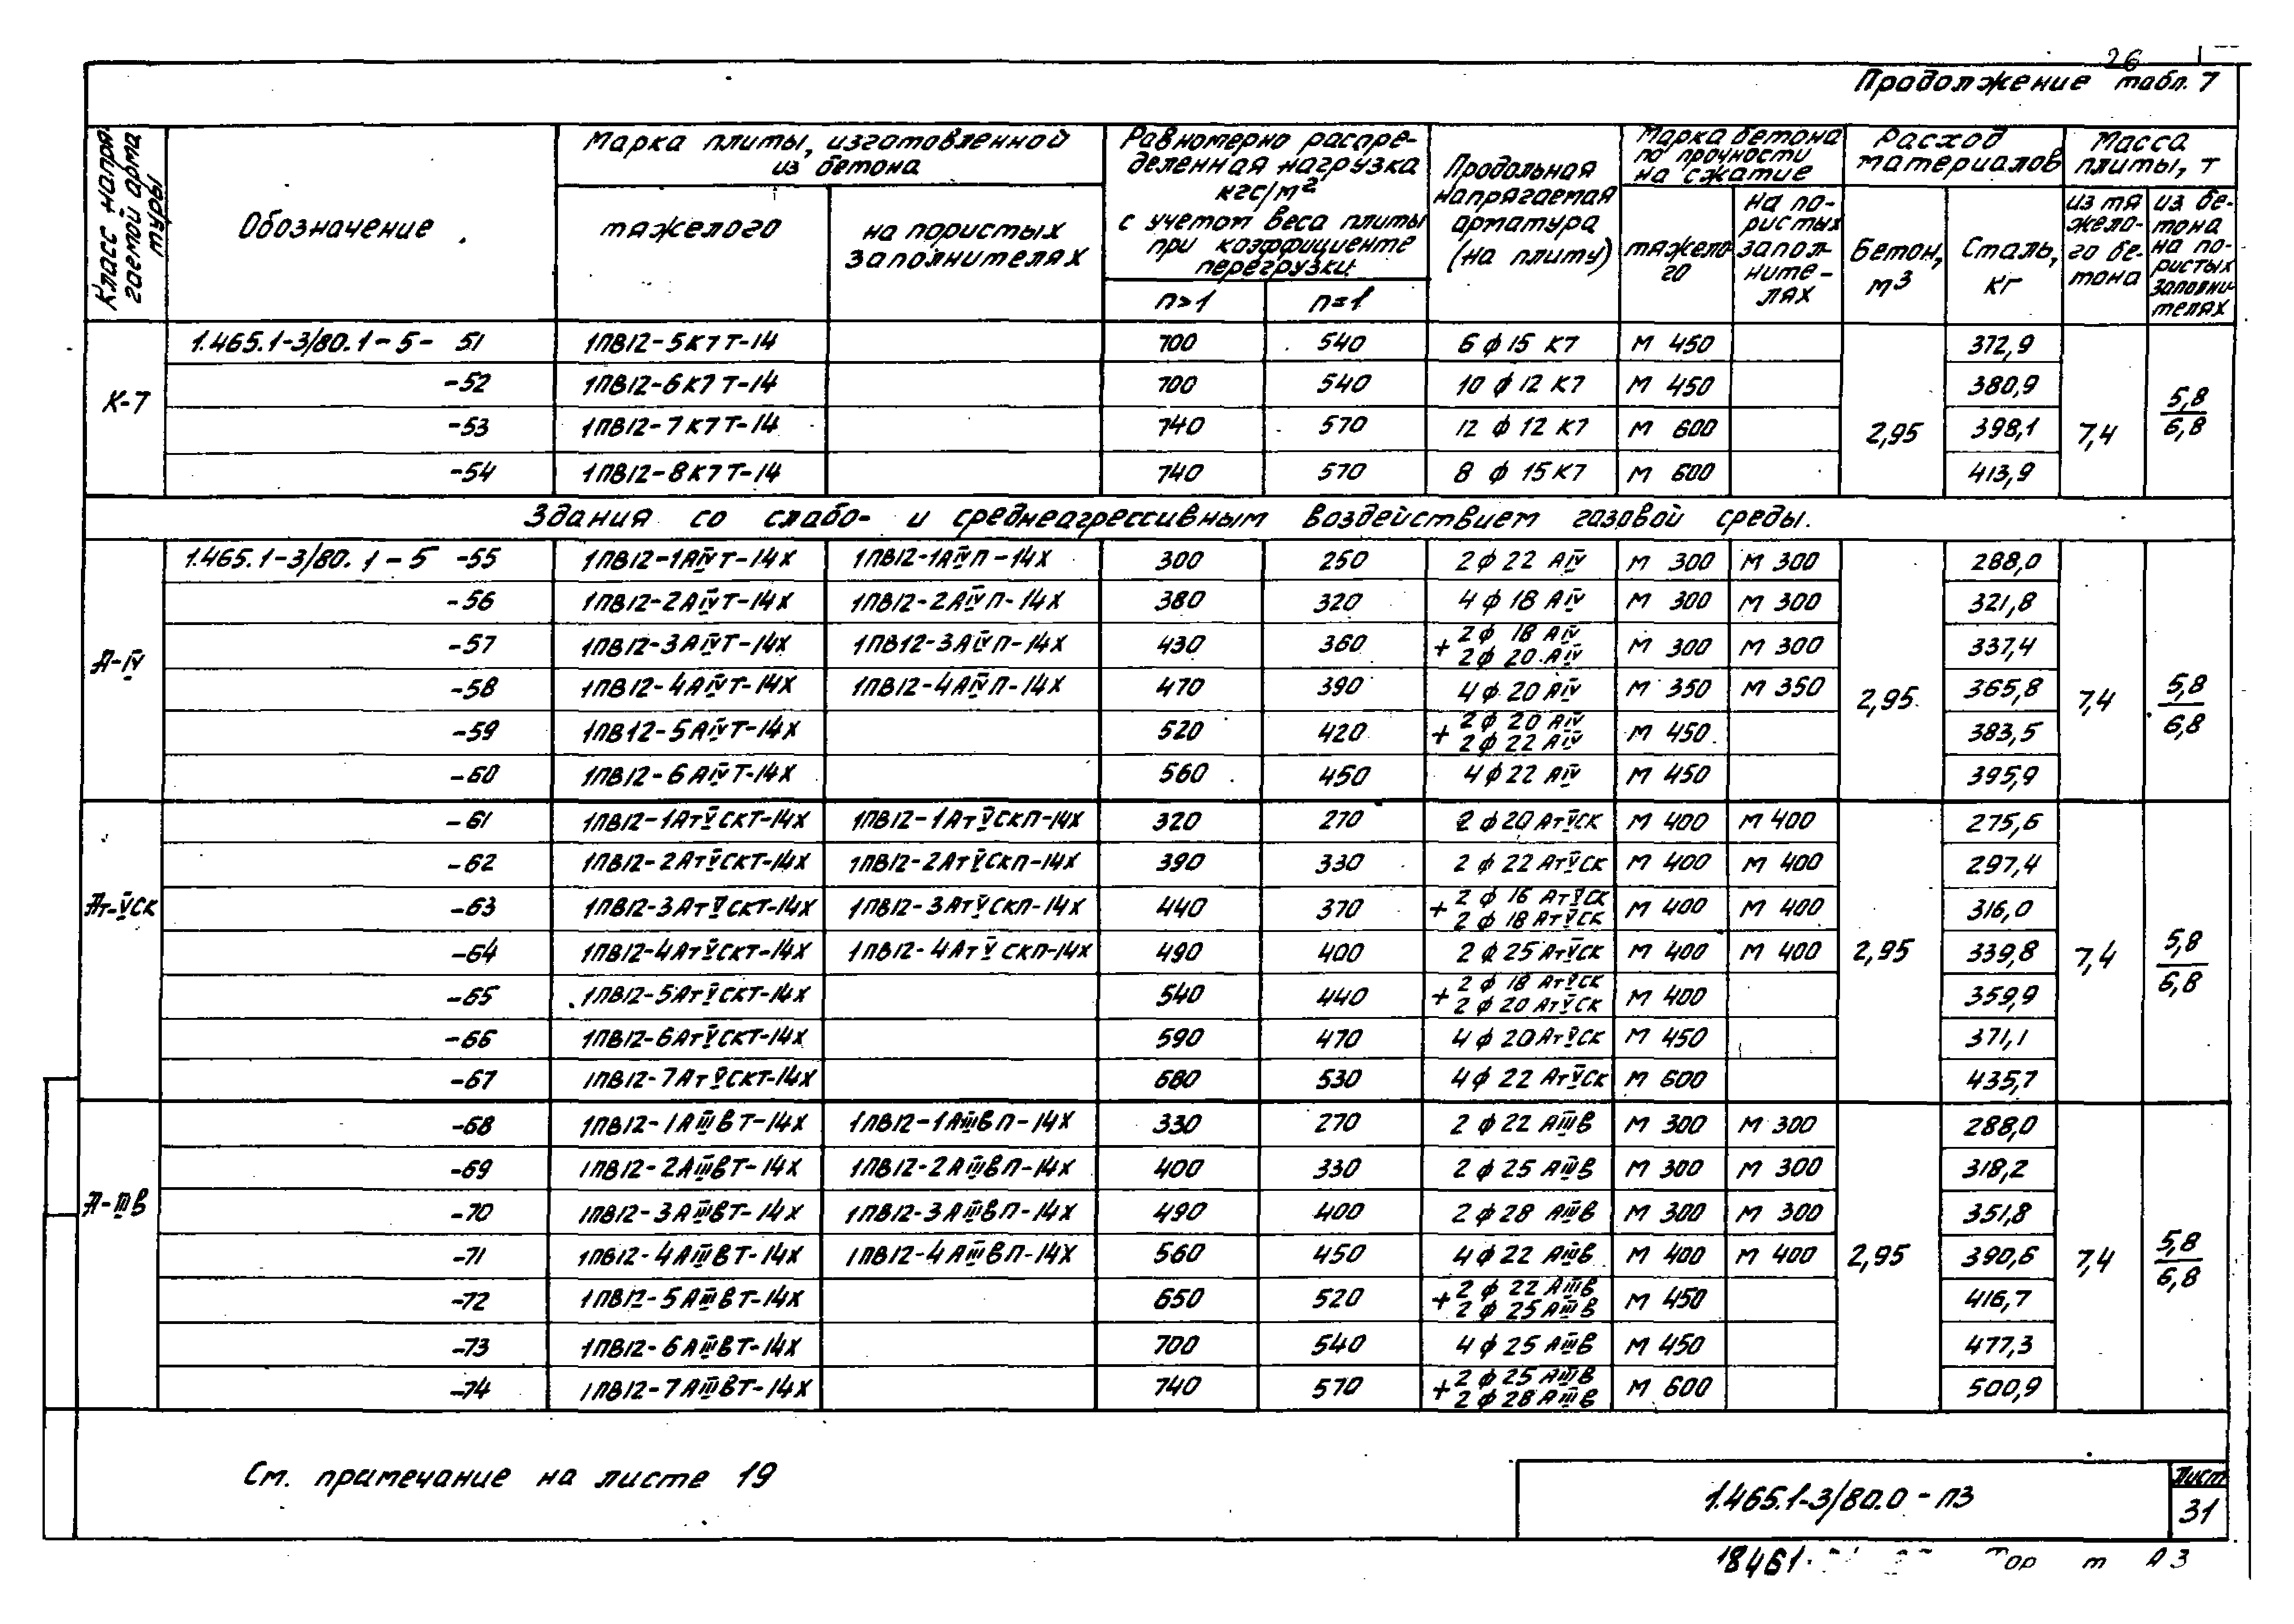 26
Продолжение табл. 7
Класс напря
гаемой арма
туры
Обозначение
Марка плиты, изготовленной
из бетона
тяжелого
на пористых
заполнителях
Равномерно распре-
деленная нагрузка
кгс/м²
с учетом веса плиты
при коэффициенте
перегрузки
n>1
n=1
Продольная
напрягаемая
арматура
(на плиту)
Марка бетона
по прочности
на сжатие
тяжело
го
на по-
ристых
запол-
ните-
лях
Расход
материалов
Бетон,
м3
Сталь,
кг
Масса
плиты, т
из тя
жело-
го бе-
тона
из бе-
тона
на по-
ристых
заполни-
телях
К-7
1.465.1-3/80.1-5- 51 1ПВ12-5К7Т-14 700 540 6 ф 15 К7 М 450 372,9
-52 1ПВ12-6К7Т-14 700 540 10 ф 12 К7 М 450 380,9
-53 1ПВ12-7К7Т-14 740 570 12 ф 12 К7 М 600 398,1
-54 1ПВ12-8К7Т-14 740 570 8 ф 15К7 М 600 413,9
2,95 7,4 5,8
6,8
Здания со слабо- и среднеагрессивным воздействием газовой среды.
А-IV
1.465.1-3/80.1-5 -55 1ПВ12-1АIVТ-14Х 1ПВ12-1АIVП-14Х 300 250 2ф22 АIV М 300 М 300 288,0
-56 1ПВ12-2АIVТ-14Х 1ПВ12-2АIVП-14Х 380 320 4ф18 АIV М 300 М 300 321,8
-57 1ПВ12-3АIVТ-14Х 1ПВ12-3АIVП-14Х 430 360 + 2ф 18 АIV
2ф 20 АIV М 300 М 300 337,4
-58 1ПВ12-4АIVТ-14Х 1ПВ12-4АIVП-14Х 470 390 4ф 20 АIV М 350 М 350 365,8
-59 1ПВ12-5АIVТ-14Х 520 420 + 2ф 20 АIV
2ф 22 АIV М 450 383,5
-60 1ПВ12-6АIVТ-14Х 560 450 4ф22 АIV М 450 395,9
2,95 7,4 5,8
6,8
Ат-VСК
-61 1ПВ12-1АтVСКТ-14Х 1ПВ12-1АтVСКП-14Х 320 270 2 ф20 АтVСК М 400 М 400 275,6
-62 1ПВ12-2АтVСКТ-14Х 1ПВ12-2АтVСКП-14Х 390 330 2 ф 22 АтVСК М 400 М 400 297,4
-63 1ПВ12-3АтVСКТ-14Х 1ПВ12-3АтVСКП-14Х 440 370 + 2 ф 16 АтVСК
2 ф 18 АтVСК М 400 М 400 316,0
-64 1ПВ12-4АтVСКТ-14Х 1ПВ12-4АтVСКП-14Х 490 400 2 ф 25 АтVСК М 400 М 400 339,8
-65 1ПВ12-5АтVСКТ-14Х 540 440 + 2 ф 18 АтVСК
2 ф 20 АтVСК М 400 359,9
-66 1ПВ12-6АтVСКТ-14Х 590 470 4 ф 20АтVСК М 450 371,1
-67 1ПВ12-7АтVСКТ-14Х 680 530 4ф 22 АтVСК М 600 435,7
2,95 7,4 5,8
6,8
А-IIIВ
-68 1ПВ12-1АIIIВТ-14Х 1ПВ12-1АIIIВП-14Х 330 270 2 ф22 АIIIВ М 300 М 300 288,0
-69 1ПВ12-2АIIIВТ-14Х 1ПВ12-2АIIIВП-14Х 400 330 2 ф 25 АIIIВ М 300 М 300 318,2
-70 1ПВ12-3АIIIВТ-14Х 1ПВ12-3АIIIВП-14Х 490 400 2ф28 АIIIВ М 300 М 300 351,8
-71 1ПВ12-4АIIIВТ-14Х 1ПВ12-4АIIIВП-14Х 560 450 4ф22 АIIIВ М 400 М 400 390,6
-72 1ПВ12-5АIIIВТ-14Х 650 520 + 2 ф 22 АIIIВ
2 ф 25АIIIВ М 450 416,7
-73 1ПВ12-6АIIIВТ-14Х 700 540 4 ф 25 АIIIВ М 450 477,3
-74 1ПВ12-7АIIIВТ-14Х 740 570 + 2 ф25 АIIIВ
2 ф28 АIIIВ М 600 500,9
2,95 7,4 5,8
6,8
См. примечание на листе 19
1.465.1-3/80.0-ПЗ
Лист
31
18461
А3